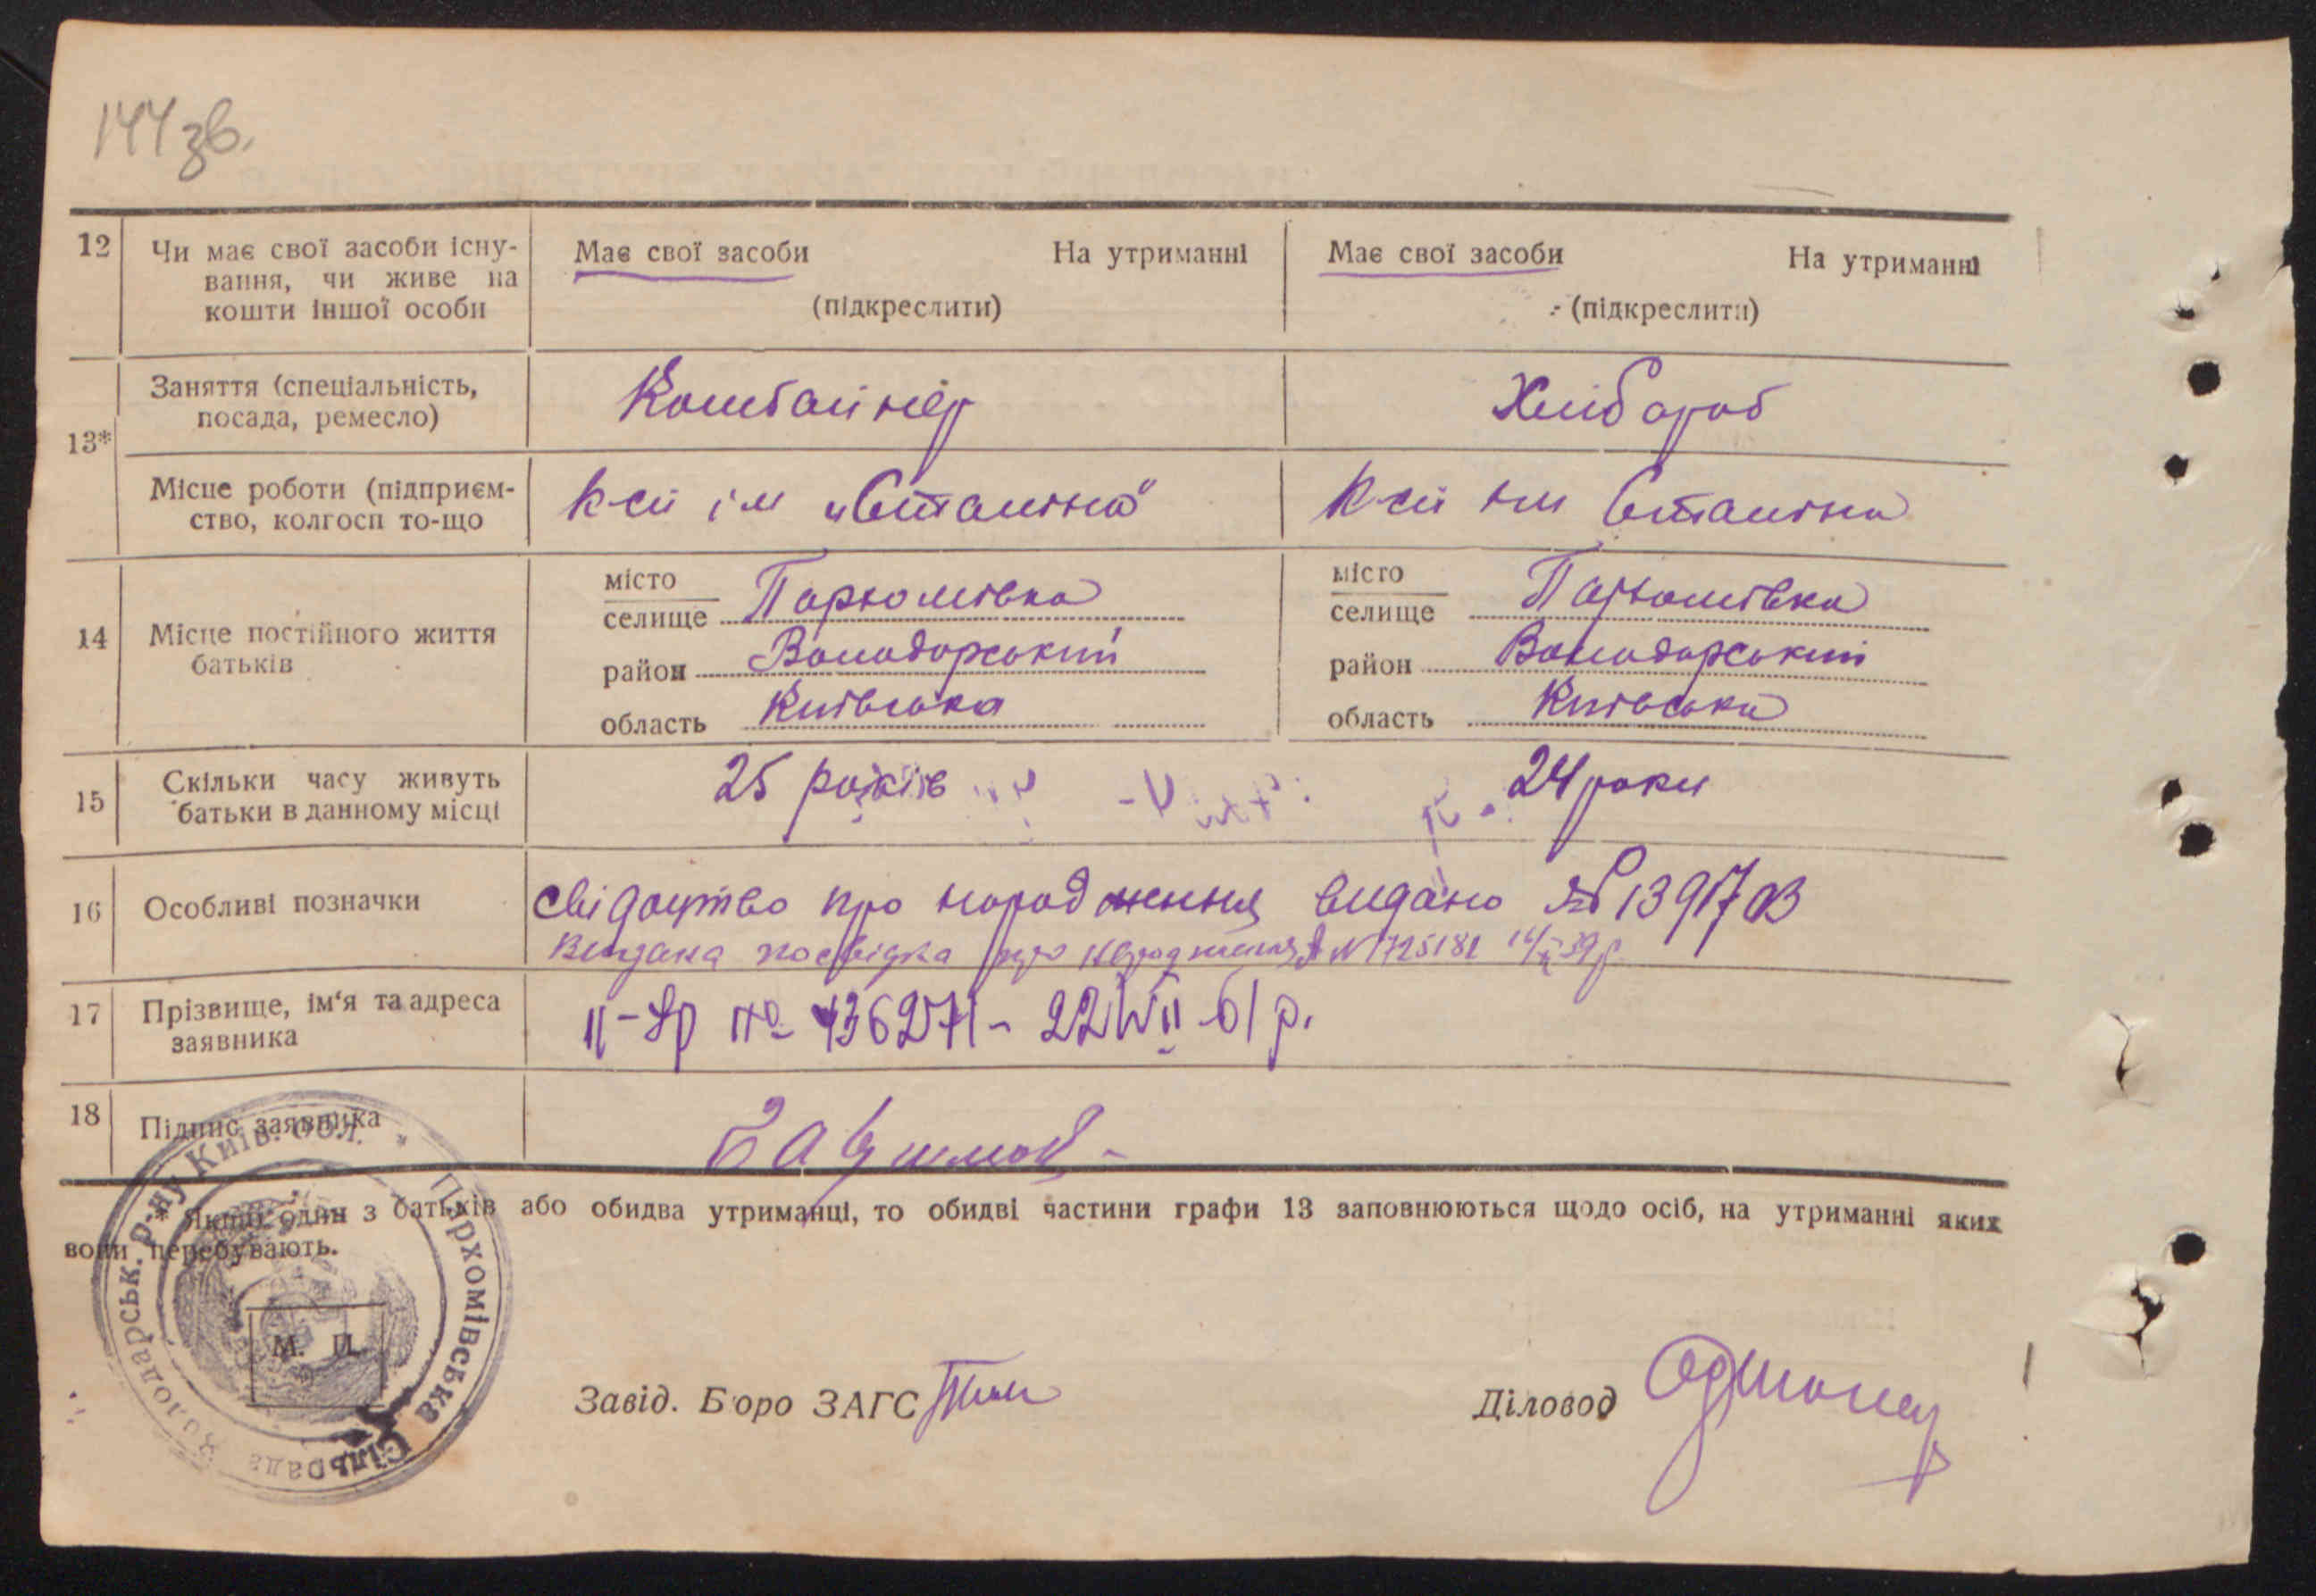 144 зв.
12 Чи має свої засоби існу-
вання, чи живе на
кошти іншої особи
Має свої засоби На утриманні
(підкреслити)
Має свої засоби На утриманні
(підкреслити)
13*
Заняття (спеціальність,
посада, ремесло)
Комбайнер
Хлібороб
Місце роботи (підприєм-
ство, колгосп то-що
к-сп ім „Сталіна"
к-сп ім Сталіна
14 Місце постійного життя
батьків
місто
селище Пархомівка
район Володарський
область Київська
місто
селище Пархомівка
район Володарський
область Київська
15 Скільки часу живуть
батьки в данному місці
25 років
24 роки
16 Особливі позначки
свідоцтво про народження видано №
Видана посвідка про народження
17 Прізвище, ім'я та адреса
заявника
18 Підпис заявника
* Якщо один з батьків або обидва утриманці, то обидві частини графи 13 заповнюються щодо осіб, на утриманні яких
вони перебувають.
Пархомівська Сільрада Володарськ. р-ну Київ. обл. *
М. П.
Завід. Бюро ЗАГС
Діловод